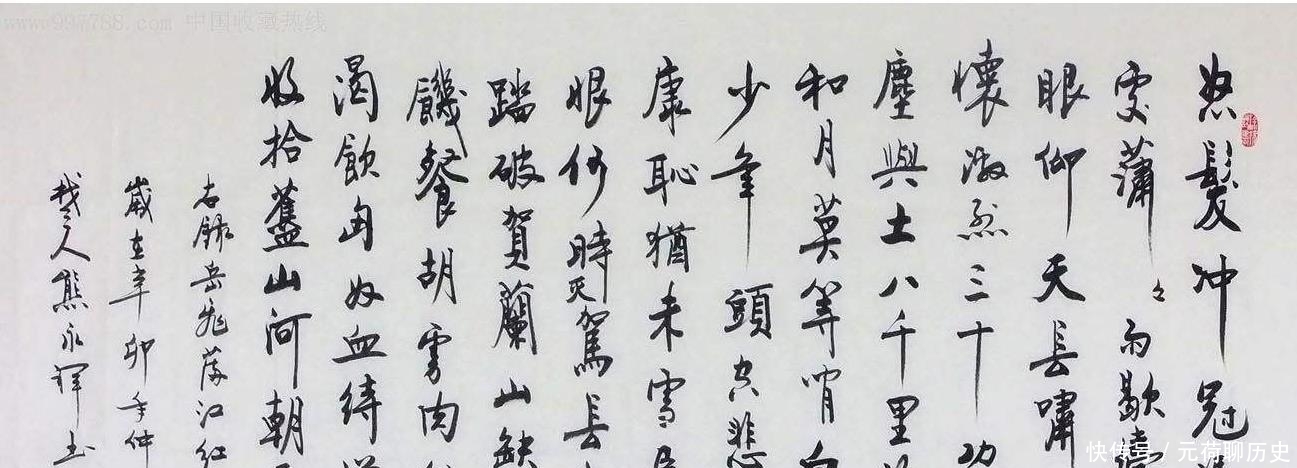 怒髮冲冠
處瀟々雨歇
眼仰天長嘯
懷激烈三十功
塵與土八千里
和月莫等閒白
少年頭空悲
康恥猶未雪
恨何時灭駕長
踏破賀蘭山缺
饑餐胡虜肉
渴飲匈奴血待
收拾舊山河朝
右錄岳飛滿江紅
歲在辛卯年仲
楚人熊永輝书
www.997788.com 中国收藏热线
快传号/元荷聊历史